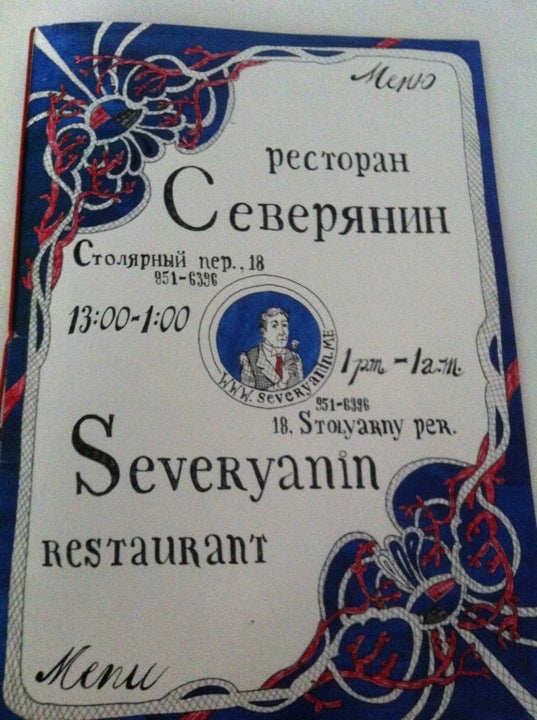 Меню
ресторан
Северянин
Столярный пер., 18
951-6396
13:00-1:00
www.severyanin.me
1 p.m. - 1 a.m.
951-6396
18, Stolyarny per.
Severyanin
restaurant
Menu